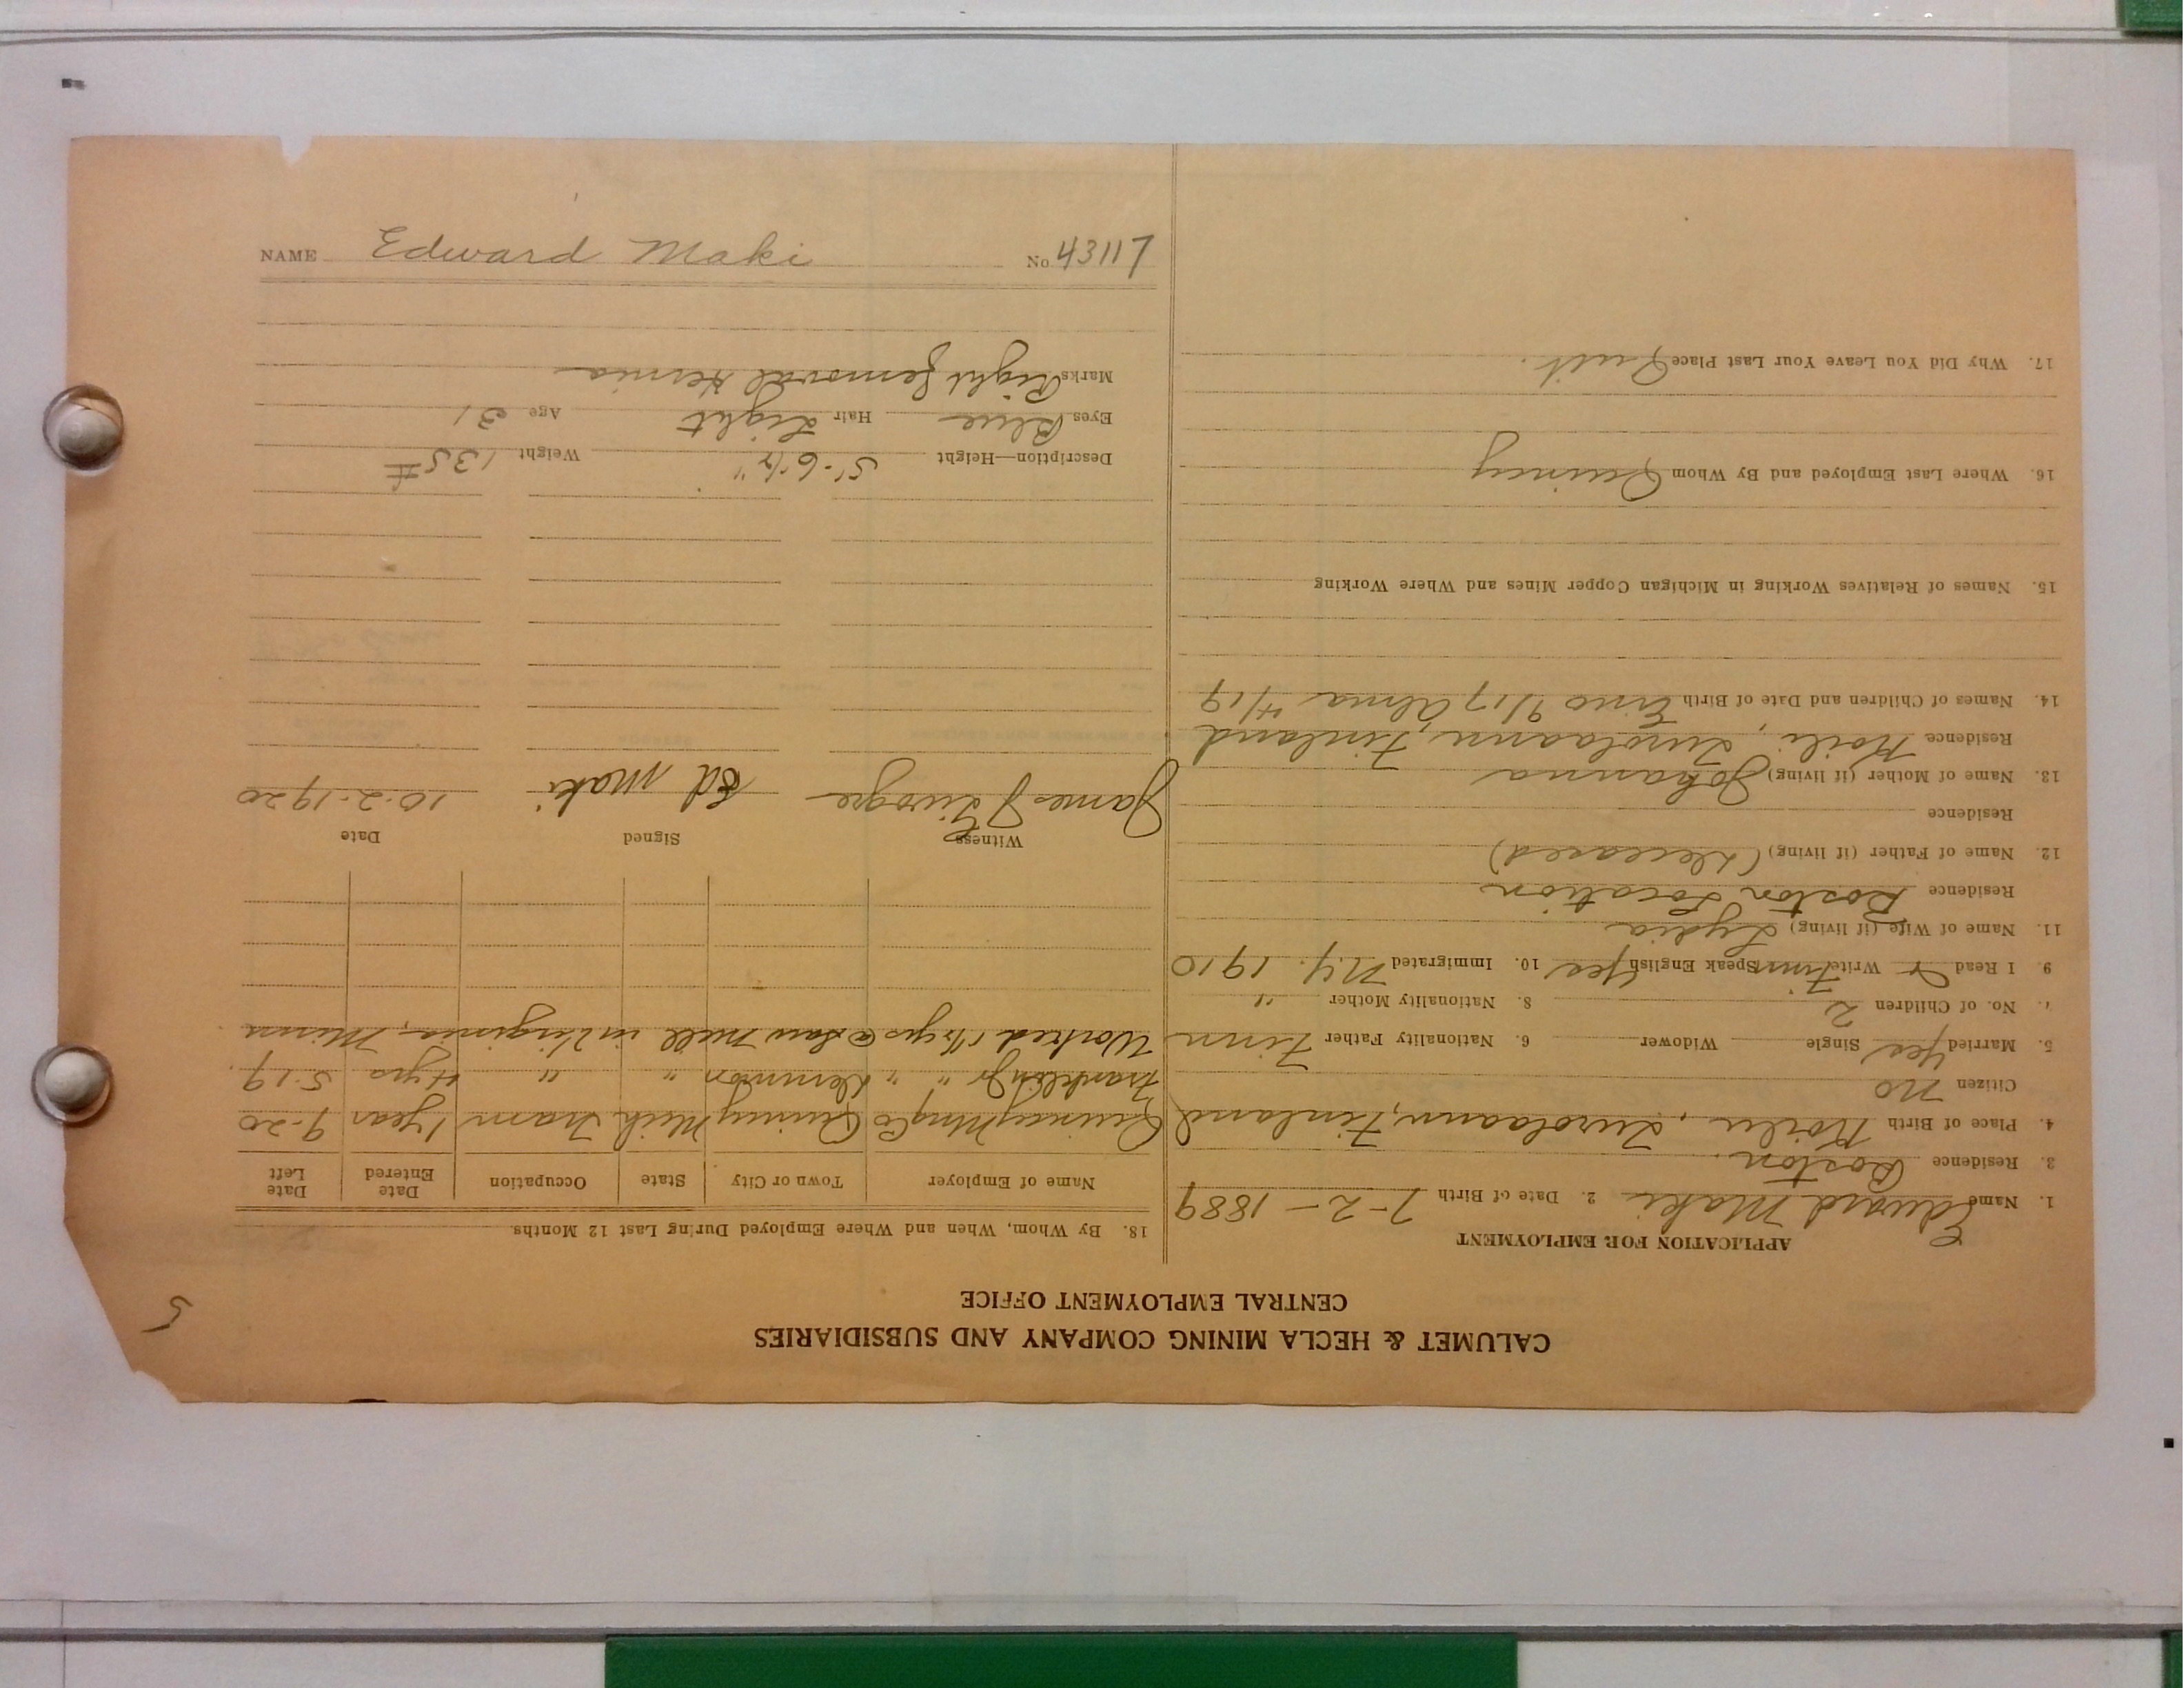 CALUMET & HECLA MINING COMPANY AND SUBSIDIARIES
CENTRAL EMPLOYMENT OFFICE
APPLICATION FOR EMPLOYMENT
1. Name Edward Maki 2. Date of Birth 7-2-1889
3. Residence Boston.
4. Place of Birth Finland
Citizen no
5. Married Yes Single Widower 6. Nationality Father Finn
7. No. of Children 2 8. Nationality Mother "
9. I Read & Write Finn Speak English Yes 10. Immigrated N.Y. 1910
11. Name of Wife (if living) Lydia
Residence Boston Location
12. Name of Father (if living) (Deceased)
Residence
13. Name of Mother (if living) Johanna
Residence Finland
14. Names of Children and Date of Birth Eino 9/17 Alma 4/19
15. Names of Relatives Working in Michigan Copper Mines and Where Working
16. Where Last Employed and By Whom Quincy
17. Why Did You Leave Your Last Place Quit.
18. By Whom, When and Where Employed During Last 12 Months.
Name of Employer Town or City State Occupation Date Entered Date Left
Quincy Mng Co Quincy Mich Tram 1 year 9-20
Franklin Jr " " " " 4 yrs 5-19.
Worked 1 1/2 yrs @ Saw Mill in Virginia, Minn.
Witness Signed Date
James Ed Maki 10-2-1920
Description—Height 5'-6 1/2" Weight 135 #
Eyes Blue Hair Light Age 31
Marks Right Femoral Hernia
NAME Edward Maki No 43117
5